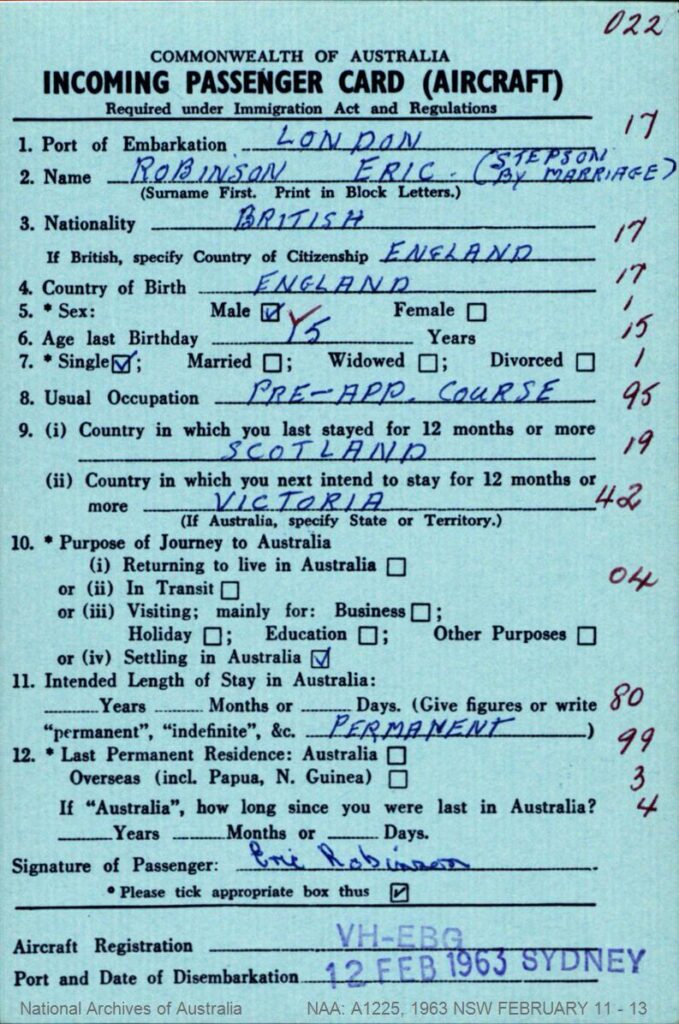 022
COMMONWEALTH OF AUSTRALIA
INCOMING PASSENGER CARD (AIRCRAFT)
Required under Immigration Act and Regulations
1. Port of Embarkation LONDON 17
2. Name ROBINSON ERIC. (STEPSON BY MARRIAGE)
(Surname First. Print in Block Letters.)
3. Nationality BRITISH 17
If British, specify Country of Citizenship ENGLAND
4. Country of Birth ENGLAND 17
5. * Sex: Male ☑ Female ☐ 1
6. Age last Birthday 15 Years 15
7. * Single ☑; Married ☐; Widowed ☐; Divorced ☐ 1
8. Usual Occupation PRE-APP. COURSE 95
9. (i) Country in which you last stayed for 12 months or more
SCOTLAND 19
(ii) Country in which you next intend to stay for 12 months or
more VICTORIA 42
(If Australia, specify State or Territory.)
10. * Purpose of Journey to Australia
(i) Returning to live in Australia ☐ 04
or (ii) In Transit ☐
or (iii) Visiting; mainly for: Business ☐;
Holiday ☐; Education ☐; Other Purposes ☐
or (iv) Settling in Australia ☑
11. Intended Length of Stay in Australia:
Years Months or Days. (Give figures or write 80
"permanent", "indefinite", &c. PERMANENT )
12. * Last Permanent Residence: Australia ☐ 99
Overseas (incl. Papua, N. Guinea) ☐ 3
If "Australia", how long since you were last in Australia? 4
Years Months or Days.
Signature of Passenger: Eric Robinson
* Please tick appropriate box thus ☑
Aircraft Registration VH-EBG
Port and Date of Disembarkation 12 FEB 1963 SYDNEY
National Archives of Australia NAA: A1225, 1963 NSW FEBRUARY 11 - 13